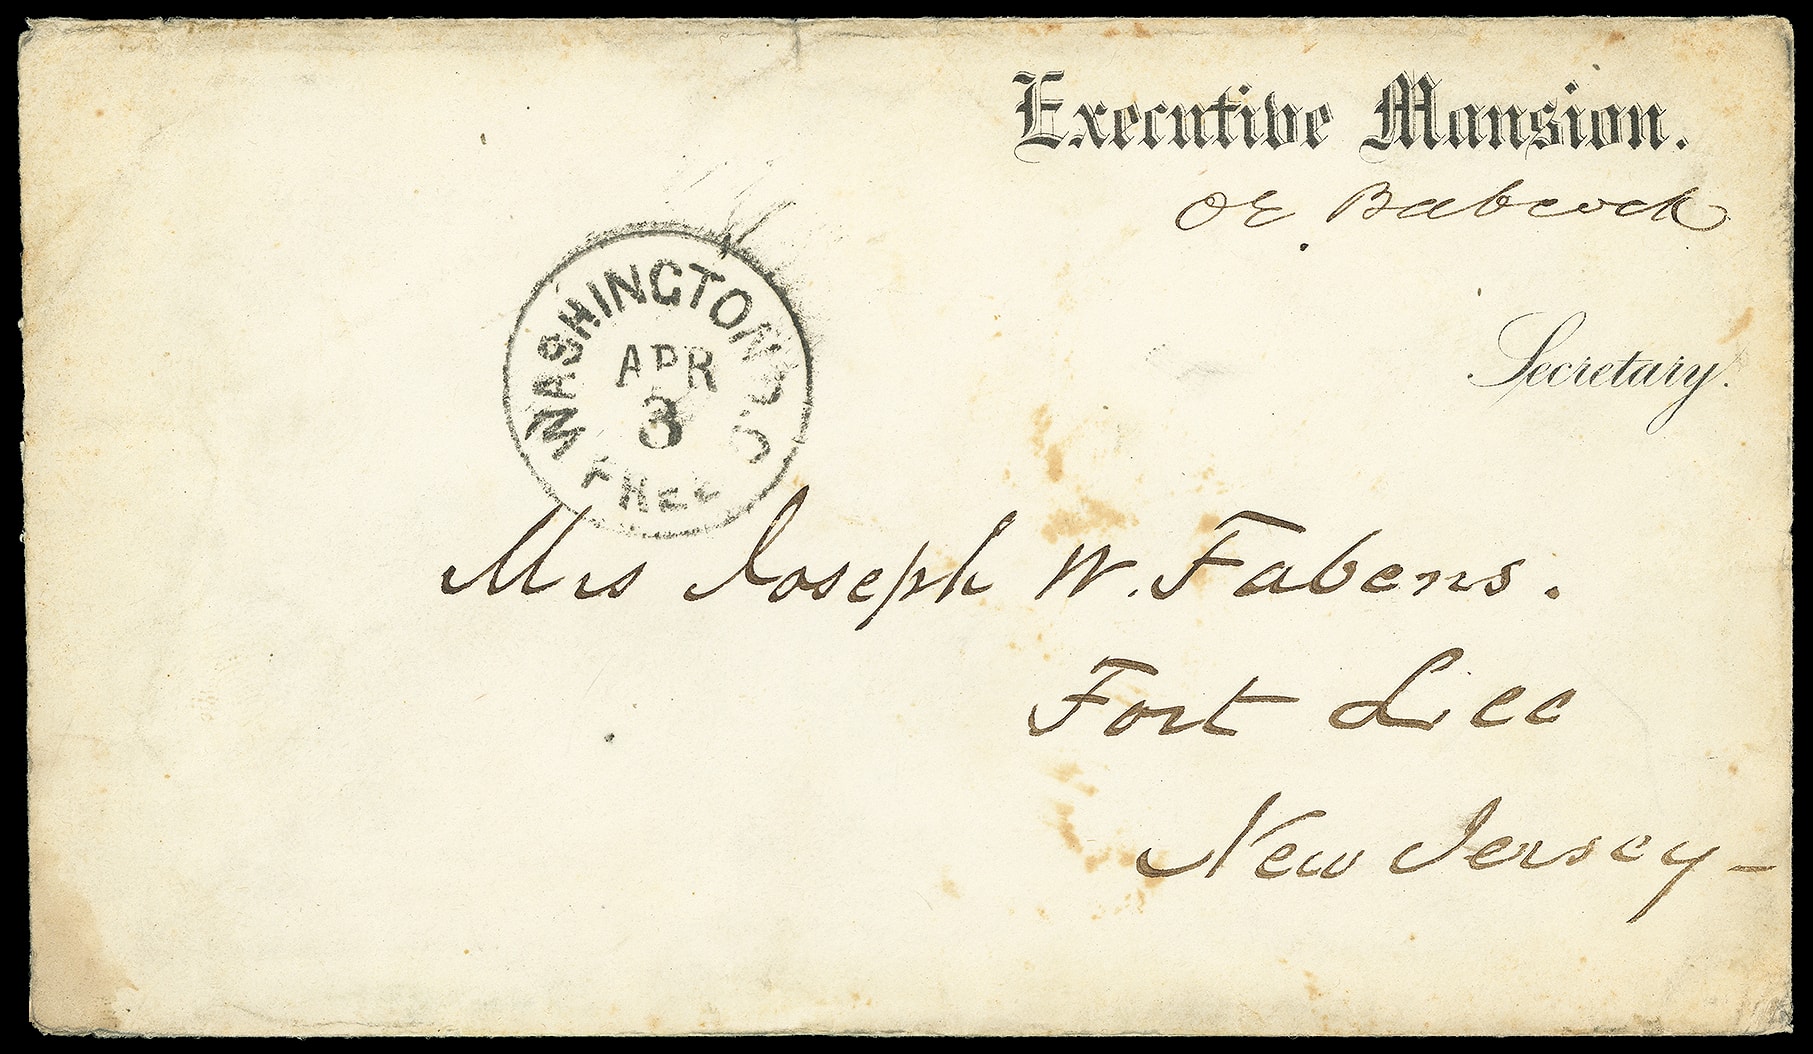 Executive Mansion.
OE Babcock
Secretary.
WASHINGTON D.C.
APR
3
FREE
Mrs Joseph W. Fabens.
Fort Lee
New Jersey-